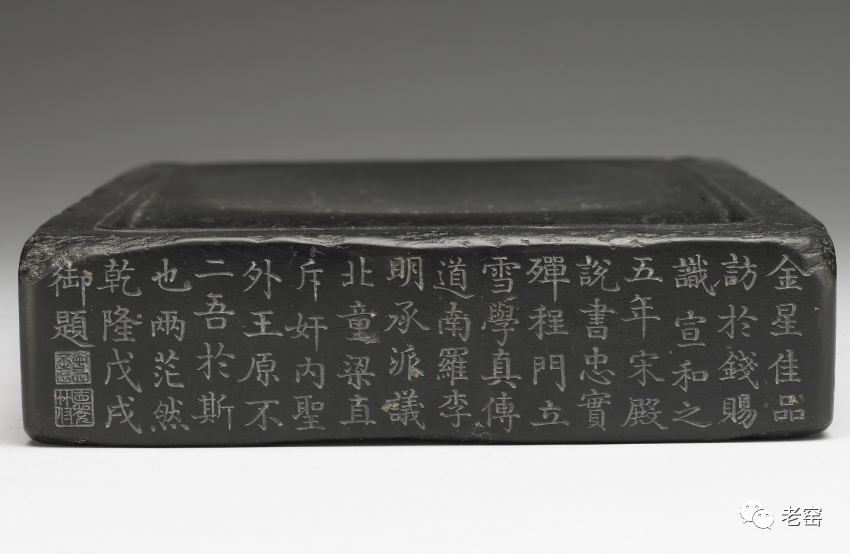 金星佳品
訪於錢賜
識宣和之
五年宋殿
說書忠實
殫程門立
雪學真傳
道南羅李
明承派議
北童梁直
斥奸内聖
外王原不
二吾於斯
也兩茫然
乾隆戊戌
御題
老窑